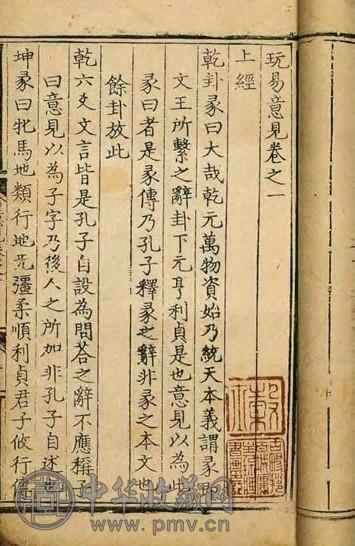 玩易意見卷之一
上經
乾卦彖曰大哉乾元萬物資始乃統天本義謂彖即
文王所繫之辭卦下元亨利貞是也意見以為此
彖曰者是彖傳乃孔子釋彖之辭非彖之本文也
餘卦放此
乾六爻文言皆是孔子自設為問荅之辭不應稱子
曰意見以為子字乃後人之所加非孔子自述也
坤彖曰牝馬地類行地无疆柔順利貞君子攸行
中华收藏网
www.pmv.cn